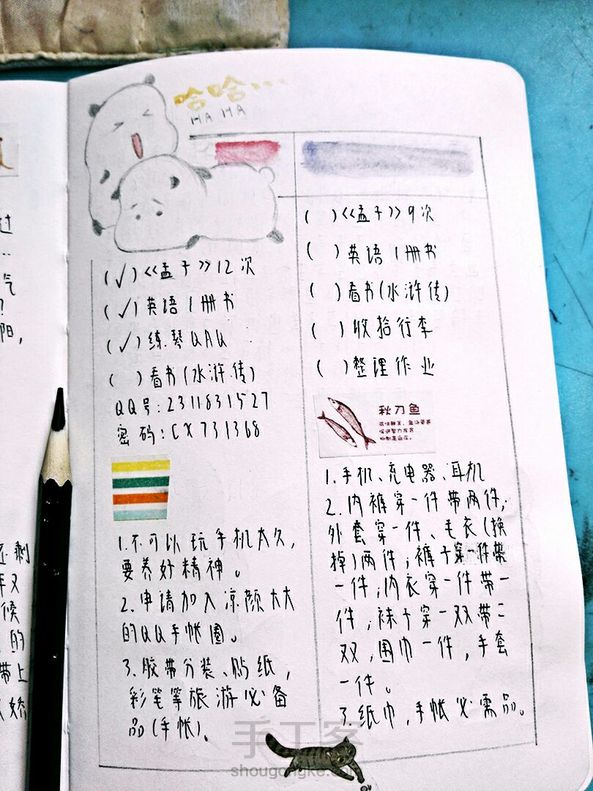 过
…
气
?
阳,
剩
又
候
的
带上
哈哈…
HA HA
(✓)《孟子》12次
(✓)英语1册书
(✓)练琴QAQ
( )看书(水浒传)
QQ号:2311831527
密码:CX731368
1.不可以玩手机太久,
要养好精神。
2.申请加入凉颜大大
的QQ手帐圈。
3.胶带分装、贴纸,
彩笔等旅游必备
品(手帐)。
( )《孟子》9次
( )英语1册书
( )看书(水浒传)
( )收拾行李
( )整理作业
秋刀鱼
1.手机、充电器、耳机
2.内裤穿一件带两件,
外套穿一件、毛衣(换
掉)两件,裤子穿一件带
一件,内衣穿一件带一
件,袜子穿一双带二
双,围巾一件,手套
一件。
3.纸巾,手帐必需品。
手工客
shougongke.com